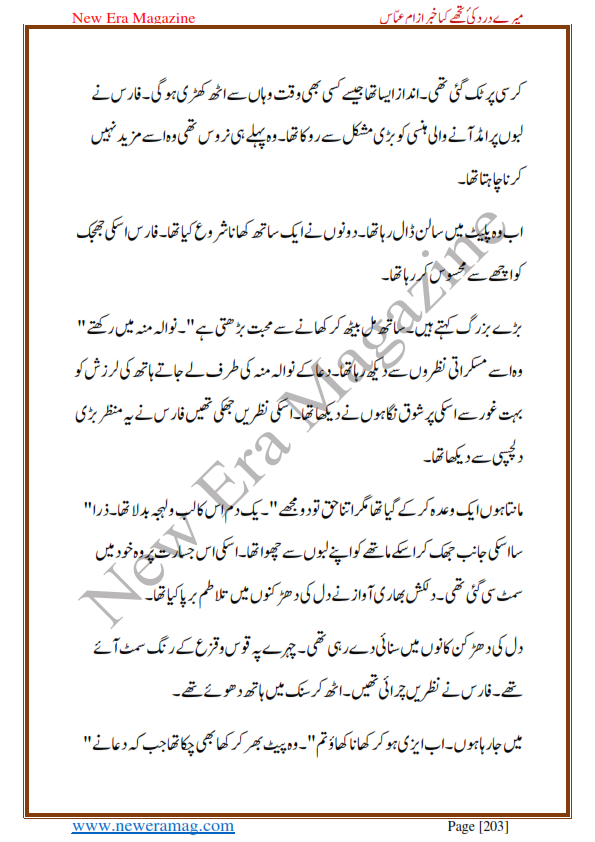 New Era Magazine میرے درد کی تجھے کیا خبر از ام عبّاس
کرسی پر ٹک گئی تھی۔ انداز ایسا تھا جیسے کسی بھی وقت وہاں سے اٹھ کھڑی ہوگی۔ فارس نے
لبوں پر امڈ آنے والی ہنسی کو بڑی مشکل سے روکا تھا۔ وہ پہلے ہی نروس تھی وہ اسے مزید نہیں
کرنا چاہتا تھا۔
اب وہ پلیٹ میں سالن ڈال رہا تھا۔ دونوں نے ایک ساتھ کھانا شروع کیا تھا۔ فارس اسکی جھجک
کو اچھے سے محسوس کر رہا تھا۔
بڑے بزرگ کہتے ہیں۔ ساتھ مل بیٹھ کر کھانے سے محبت بڑھتی ہے"۔ نوالہ منہ میں رکھتے"
وہ اسے مسکراتی نظروں سے دیکھ رہا تھا۔ دعا کے نوالہ منہ کی طرف لے جاتے ہاتھ کی لرزش کو
بہت غور سے اسکی پر شوق نگاہوں نے دیکھا تھا۔ اسکی نظریں جھکی تھیں فارس نے یہ منظر بڑی
دلچسپی سے دیکھا تھا۔
مانتا ہوں ایک وعدہ کر کے گیا تھا مگر اتنا حق تو دو مجھے"۔ یک دم اس کا لب و لہجہ بدلا تھا۔ ذرا"
سا اسکی جانب جھک کر اسکے ماتھے کو اپنے لبوں سے چھوا تھا۔ اسکی اس جسارت پر وہ خود میں
سمٹ سی گئی تھی۔ دلکش بھاری آواز نے دل کی دھڑکنوں میں تلاطم برپا کیا تھا۔
دل کی دھڑکن کانوں میں سنائی دے رہی تھی۔ چہرے پہ قوس و قزع کے رنگ سمٹ آئے
تھے۔ فارس نے نظریں چرائی تھیں۔ اٹھ کر سنک میں ہاتھ دھوئے تھے۔
میں جا رہا ہوں۔ اب ایزی ہو کر کھانا کھاؤ تم"۔ وہ پیٹ بھر کر کھا بھی چکا تھا جب کہ دعا نے"
www.neweramag.com Page [203]
New Era Magazine